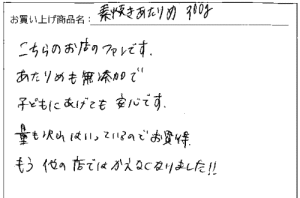 お買い上げ商品名：素焼きあたりめ 300g
こちらのお店のファンです。
あたりめも無添加で
子どもにあげても安心です。
量も沢山はいっているのでお買得
もう他の店ではかえなくなりました!!